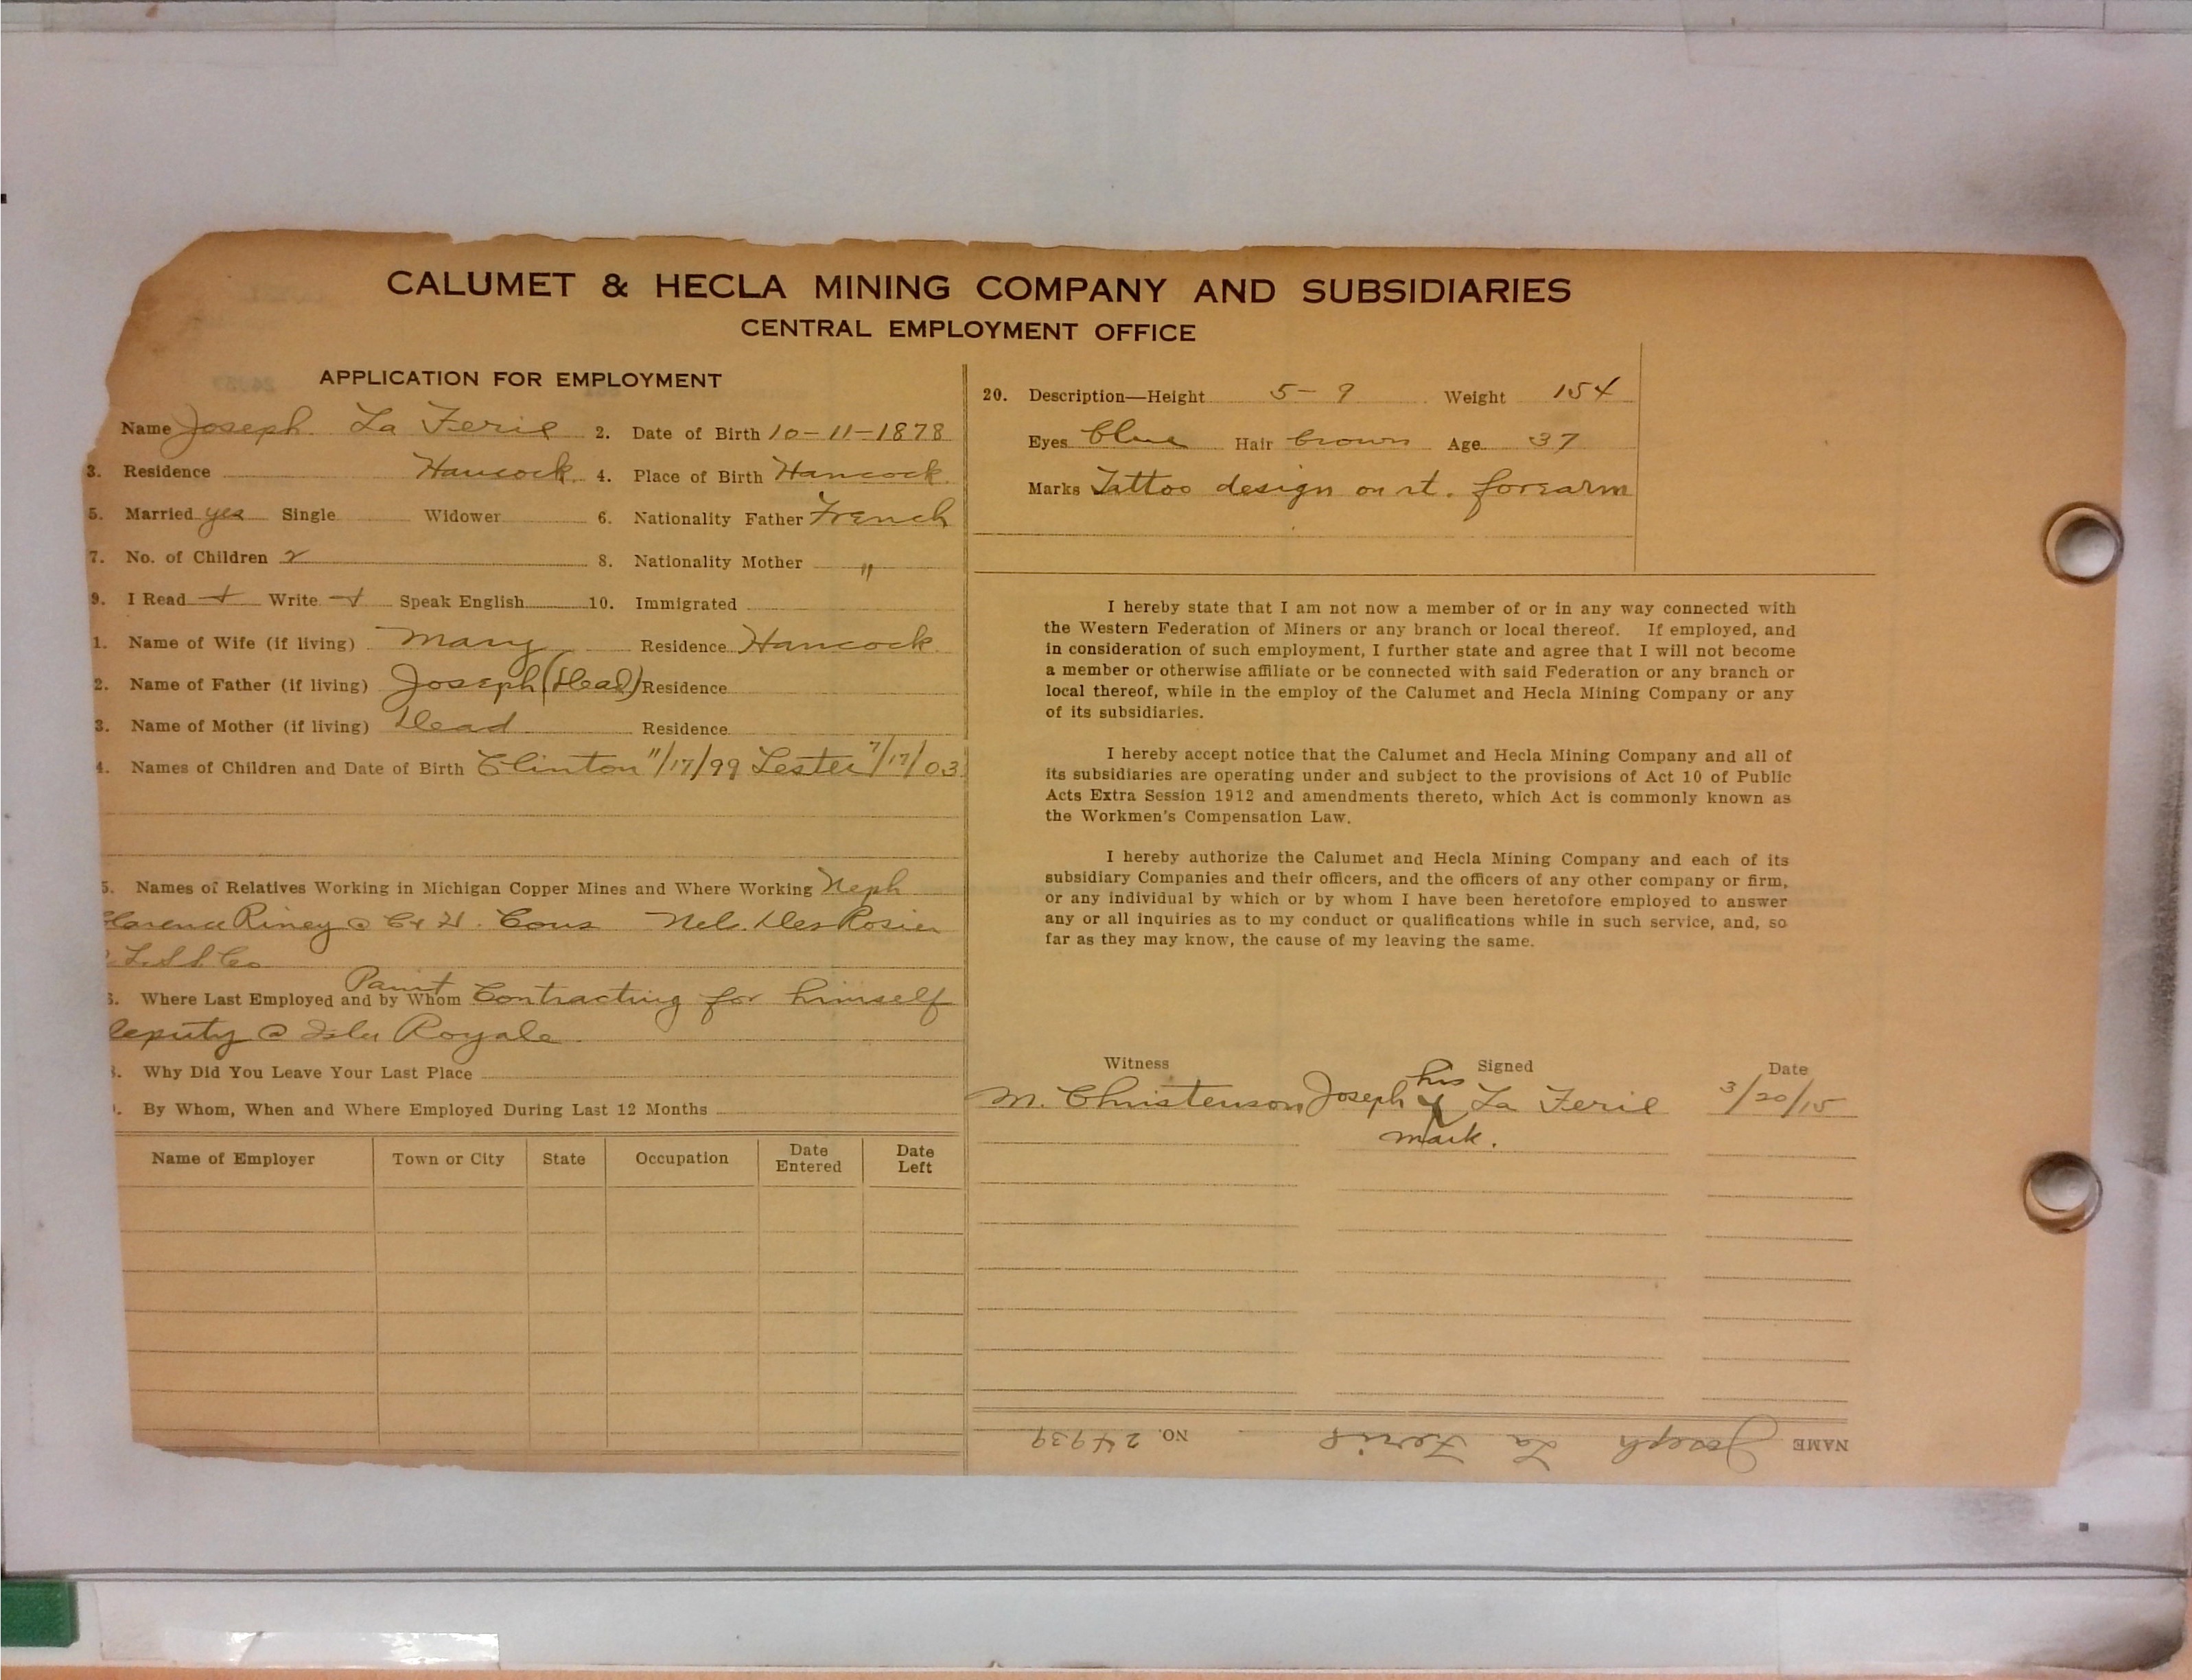 CALUMET & HECLA MINING COMPANY AND SUBSIDIARIES
CENTRAL EMPLOYMENT OFFICE
APPLICATION FOR EMPLOYMENT
Name Joseph La Ferie 2. Date of Birth 10-11-1878
3. Residence Hancock 4. Place of Birth Hancock
5. Married yes Single Widower 6. Nationality Father French
7. No. of Children 2 8. Nationality Mother "
9. I Read + Write + Speak English 10. Immigrated
1. Name of Wife (if living) Mary Residence Hancock
2. Name of Father (if living) Joseph (Dead) Residence
3. Name of Mother (if living) Dead Residence
4. Names of Children and Date of Birth Clinton 11/17/99 Lester 7/17/03
5. Names of Relatives Working in Michigan Copper Mines and Where Working Neph
Clarence Riney @ C & H. Cous Nels. DesRosier
L.S.S. Co
Paint
6. Where Last Employed and by Whom Contracting for himself
deputy @ Isle Royale
8. Why Did You Leave Your Last Place
9. By Whom, When and Where Employed During Last 12 Months
Name of Employer Town or City State Occupation Date Entered Date Left
20. Description—Height 5-9 Weight 154
Eyes blue Hair brown Age 37
Marks Tattoo design on rt. forearm
I hereby state that I am not now a member of or in any way connected with
the Western Federation of Miners or any branch or local thereof. If employed, and
in consideration of such employment, I further state and agree that I will not become
a member or otherwise affiliate or be connected with said Federation or any branch or
local thereof, while in the employ of the Calumet and Hecla Mining Company or any
of its subsidiaries.
I hereby accept notice that the Calumet and Hecla Mining Company and all of
its subsidiaries are operating under and subject to the provisions of Act 10 of Public
Acts Extra Session 1912 and amendments thereto, which Act is commonly known as
the Workmen's Compensation Law.
I hereby authorize the Calumet and Hecla Mining Company and each of its
subsidiary Companies and their officers, and the officers of any other company or firm,
or any individual by which or by whom I have been heretofore employed to answer
any or all inquiries as to my conduct or qualifications while in such service, and, so
far as they may know, the cause of my leaving the same.
Witness Signed Date
his
M. Christenson Joseph X La Ferie 3/20/15
mark.
NAME Joseph La Ferie NO. 24939